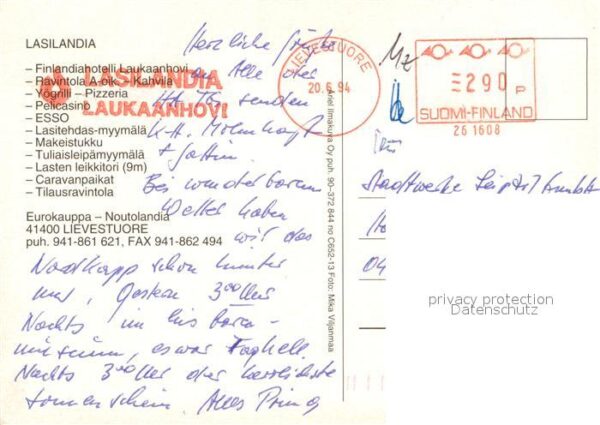 LASILANDIA
– Finlandiahotelli Laukaanhovi
– Ravintola A-olk. - Kahvila
– Yögrilli – Pizzeria
– Pelicasino
– ESSO
– Lasitehdas-myymälä
– Makeistukku
– Tuliaisleipämyymälä
– Lasten leikkitori (9m)
– Caravanpaikat
– Tilausravintola
Eurokauppa – Noutolandia
41400 LIEVESTUORE
puh. 941-861 621, FAX 941-862 494
LASILANDIA
LAUKAANHOVI
Herzliche Grüße
an Alle der
senden
K.-H.
+ Gattin.
Bei wunderbarem
Wetter haben
wir das
Nordkapp schon hinter
uns, Gestern 3°° Uhr
Nachts im
es war Taghell.
Nachts 3°° Uhr der herrlichste
Sonnenschein. Alles
Ariel Ilmakuva Oy puh. 90-372 844 no C652-13 Foto: Mika Viljanmaa
LIEVESTUORE
20.6.94
290 P
SUOMI-FINLAND
26 1608
Stadtwerke Leipzig GmbH
04
privacy protection
Datenschutz